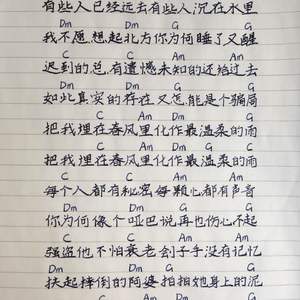 有些人已经远去有些人沉在水里
Dm Dm G G
我不愿想起北方你为何睡了又醒
C C Am Am
迟到的总有遗憾未知的还给过去
Dm Dm G G
如此真实的存在又怎能是个骗局
C Am Dm G
把我埋在春风里化作最温柔的雨
C Am Dm G C
把我埋在春风里化作最温柔的雨
C C Am Am
每个人都有秘密每颗心都有声音
Dm Dm G G
你为何像个哑巴说再也伤心不起
C C Am Am
强盗他不怕衰老刽子手没有记忆
Dm Dm G G
扶起摔倒的阿婆拍拍她身上的泥
C Am Dm G